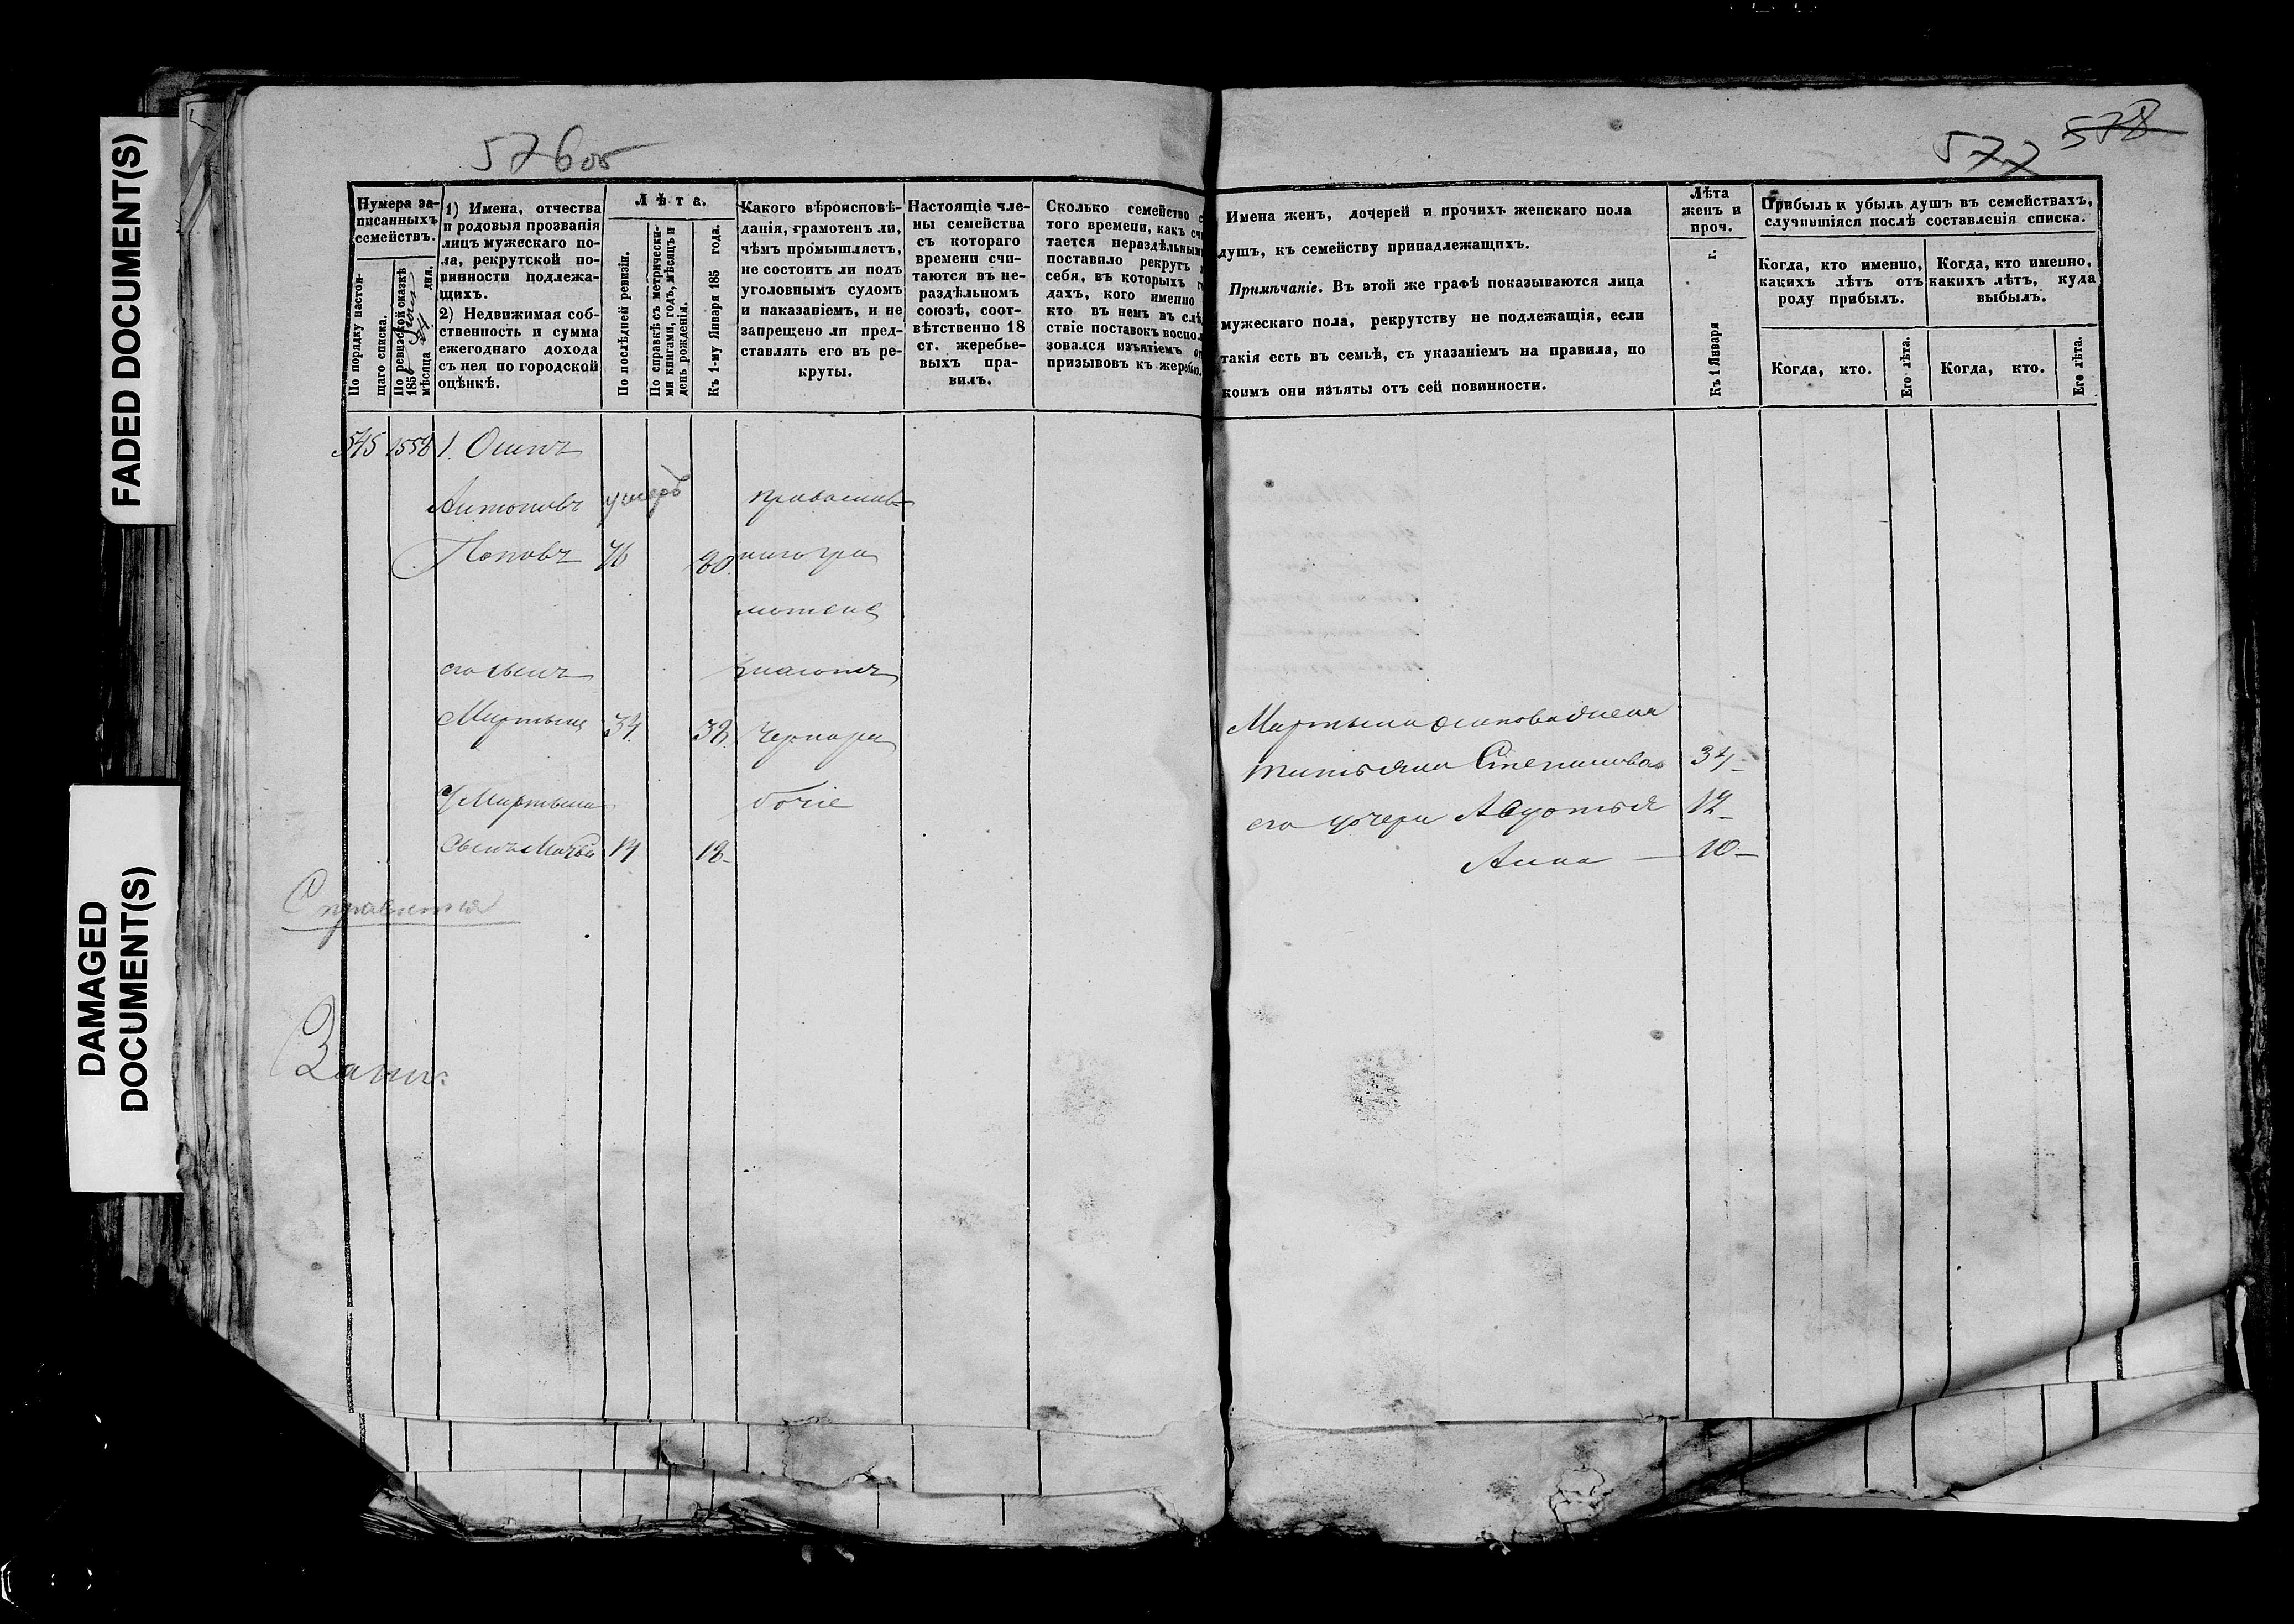 FADED DOCUMENT(S)
DAMAGED
DOCUMENT(S)
576об
577
578
Нумера за-
писанныхъ
семействъ.
По порядку настоя-
щаго списка.
По ревизской сказкѣ
185
мѣсяца дня.
1) Имена, отчества
и родовыя прозванія
лицъ мужескаго по-
ла, рекрутской по-
винности подлежа-
щихъ.
2) Недвижимая соб-
ственность и сумма
ежегоднаго дохода
съ нея по городской
оцѣнкѣ.
Лѣта.
По послѣдней ревизіи.
По справкѣ съ метрически-
ми книгами, годъ, мѣсяцъ и
день рожденія.
Къ 1-му Января 185 года.
Какого вѣроисповѣ-
данія, грамотенъ ли,
чѣмъ промышляетъ,
не состоитъ ли подъ
уголовнымъ судомъ
и наказаніемъ, и не
запрещено ли пред-
ставлять его въ ре-
круты.
Настоящіе чле-
ны семейства
съ котораго
времени счи-
таются въ не-
раздѣльномъ
союзѣ, соот-
вѣтственно 18
ст. жеребье-
выхъ пра-
вилъ.
Сколько семейство с
того времени, какъ счи
тается нераздѣльнымъ
поставило рекрутъ
себя, въ которыхъ го
дахъ, кого именно
кто въ немъ въ слѣд
ствіе поставокъ воспол
зовался изъятіемъ от
призывовъ къ жеребью.
Имена женъ, дочерей и прочихъ женскаго пола
душъ, къ семейству принадлежащихъ.
Примѣчаніе. Въ этой же графѣ показываются лица
мужескаго пола, рекрутству не подлежащія, если
такія есть въ семьѣ, съ указаніемъ на правила, по
коимъ они изъяты отъ сей повинности.
Лѣта
женъ и
проч.
Къ 1 Января г.
Прибыль и убыль душъ въ семействахъ,
случившіяся послѣ составленія списка.
Когда, кто именно,
какихъ лѣтъ отъ
роду прибылъ.
Когда, кто именно,
какихъ лѣтъ, куда
выбылъ.
Когда, кто.
Его лѣта.
Когда, кто.
Его лѣта.
545 1558 1. Осипъ
Антоновъ умеръ православ
Поповъ 76 80. наго гра
мотенъ
его сынъ
Мартынъ 34. 38. Чернора
бочіе
У Мартына
сынъ 14 18
Мартына Осипова жена
Татьяна Степанова 34
его дочери Авдотья 12
Анна 10
Справится